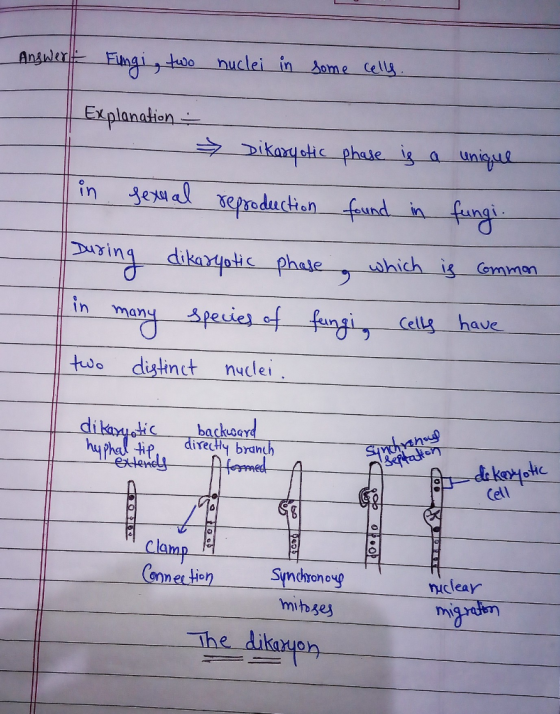 Answer:- Fungi, two nuclei in some cells.
Explanation :-
⇒ Dikaryotic phase is a unique
in sexual reproduction found in fungi.
During dikaryotic phase, which is common
in many species of fungi, cells have
two distinct nuclei.
dikaryotic
hyphal tip
extends
backward
directly branch
formed
Synchronous
septation
dikaryotic
cell
Clamp
Connection
Synchronous
mitoses
nuclear
migration
The dikaryon